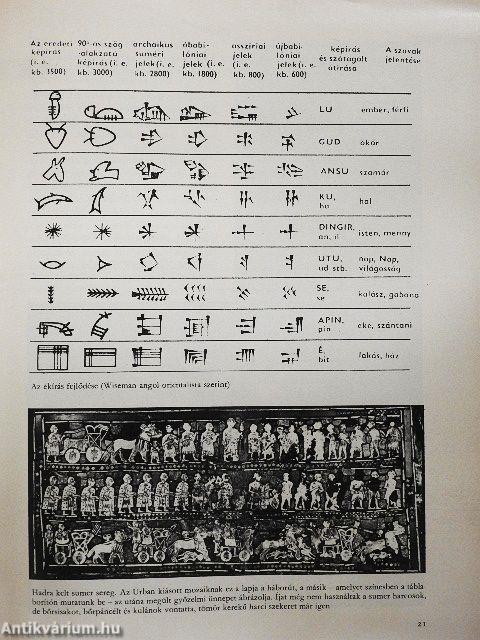 Az eredeti képírás (i. e. kb. 3500)
90°-os szög -alakzatú képírás (i. e. kb. 3000)
archaikus suméri jelek (i. e. kb. 2800)
óbabi- lóniai jelek (i. e. kb. 1800)
asszíriai jelek (i. e. kb. 800)
újbabi- lóniai jelek (i. e. kb. 600)
képírás és szótagolt átírása
A szavak jelentése
LU ember, férfi
GUD ökör
ANSU szamár
KU, ha hal
DINGIR, an, il isten, menny
UTU, ud stb. nap, Nap, világosság
SE, se kalász, gabona
APIN, pin eke, szántani
É, bit lakás, ház
Az ékírás fejlődése (Wiseman angol orientalista szerint)
Hadra kelt sumer sereg. Az Urban kiásott mozaiknak ez a lapja a háborút, a másik – amelyet színesben a tábla
borítón mutatunk be – az utána megült győzelmi ünnepet ábrázolja. Íjat még nem használtak a sumer harcosok,
de bőrsisakot, bőrpáncélt és kulánok vontatta, tömör kerekű harci szekeret már igen
21
Antikvárium.hu